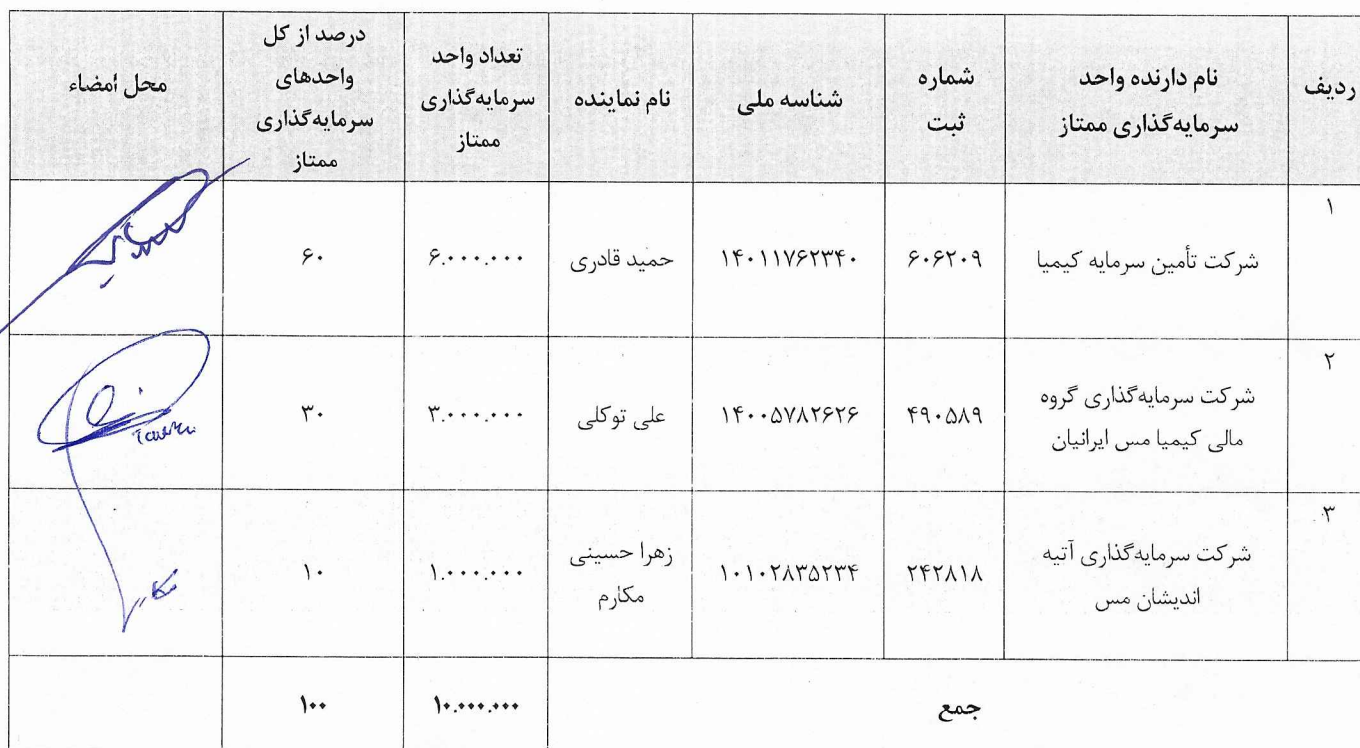 ردیف
نام دارنده واحد
سرمایه‌گذاری ممتاز
شماره
ثبت
شناسه ملی
نام نماینده
تعداد واحد
سرمایه‌گذاری
ممتاز
درصد از کل
واحدهای
سرمایه‌گذاری
ممتاز
محل امضاء
۱
شرکت تأمین سرمایه کیمیا
۶۰۶۲۰۹
۱۴۰۱۱۷۶۲۳۴۰
حمید قادری
۶.۰۰۰.۰۰۰
۶۰
۲
شرکت سرمایه‌گذاری گروه
مالی کیمیا مس ایرانیان
۴۹۰۵۸۹
۱۴۰۰۵۷۸۲۶۲۶
علی توکلی
۳.۰۰۰.۰۰۰
۳۰
۳
شرکت سرمایه‌گذاری آتیه
اندیشان مس
۲۴۲۸۱۸
۱۰۱۰۲۸۳۵۲۳۴
زهرا حسینی
مکارم
۱.۰۰۰.۰۰۰
۱۰
جمع
۱۰.۰۰۰.۰۰۰
۱۰۰